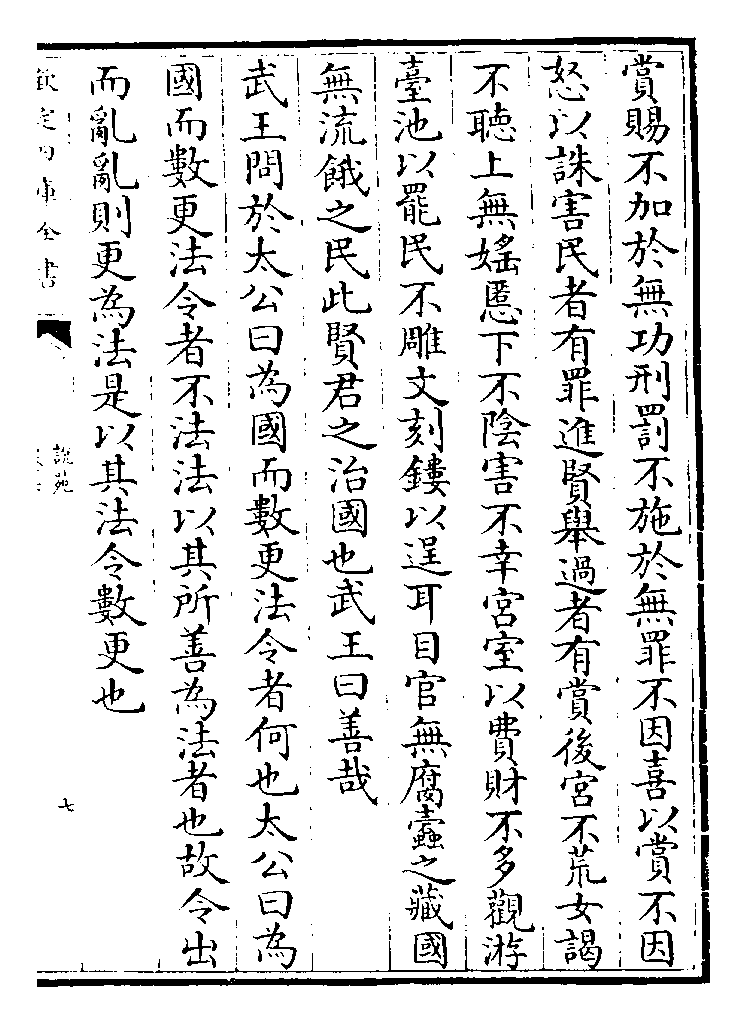 賞賜不加於無功刑罰不施於無罪不因喜以賞不因
怒以誅害民者有罪進賢舉過者有賞後宮不荒女謁
不聽上無婬慝下不陰害不幸宮室以費財不多觀游
臺池以罷民不雕文刻鏤以逞耳目官無腐蠹之藏國
無流餓之民此賢君之治國也武王曰善哉
武王問於太公曰為國而數更法令者何也太公曰為
國而數更法令者不法法以其所善為法者也故令出
而亂亂則更為法是以其法令數更也
欽定四庫全書
說苑
七